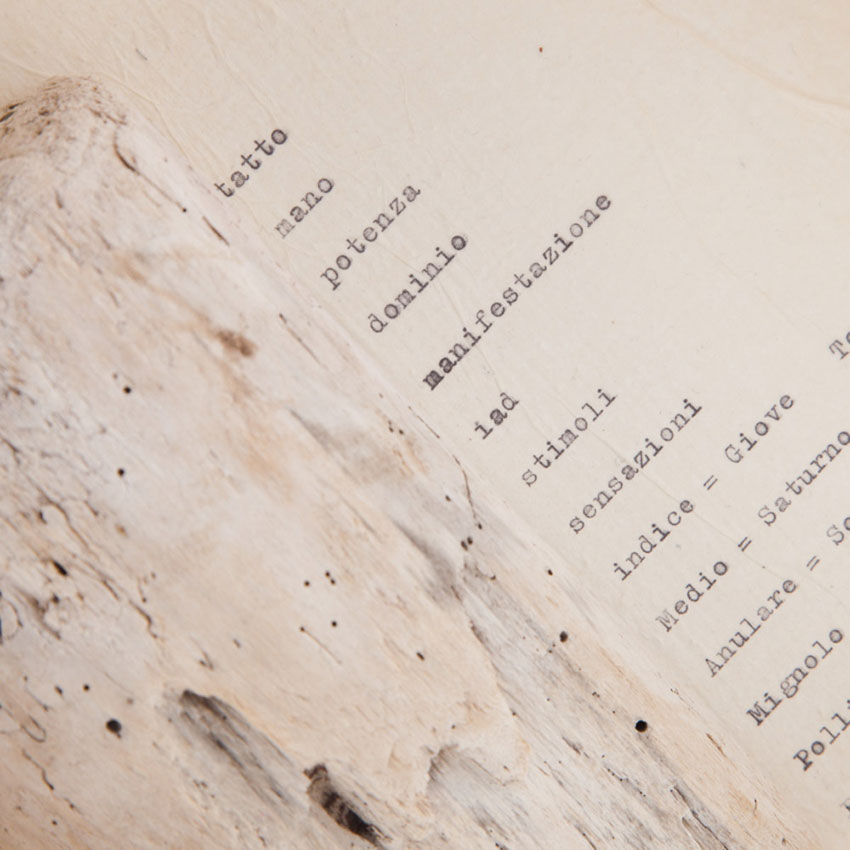 tatto
mano
potenza
dominio
manifestazione
iad
stimoli
sensazioni
indice = Giove
Medio = Saturno
Anulare = So
Mignolo
Polli